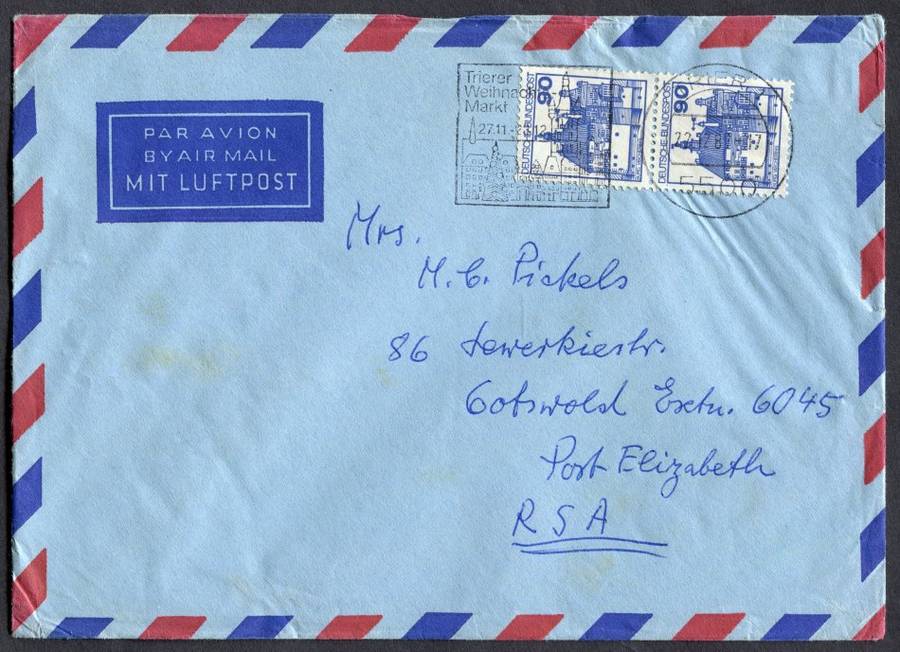 PAR AVION
BY AIR MAIL
MIT LUFTPOST
Trierer
Weihnachts
Markt
27.11.-
90
DEUTSCHE BUNDESPOST
90
DEUTSCHE BUNDESPOST
Mrs.
M. C. Pickels
86 Jewerkiestr.
Cotswold Extn. 6045
Port Elizabeth
RSA